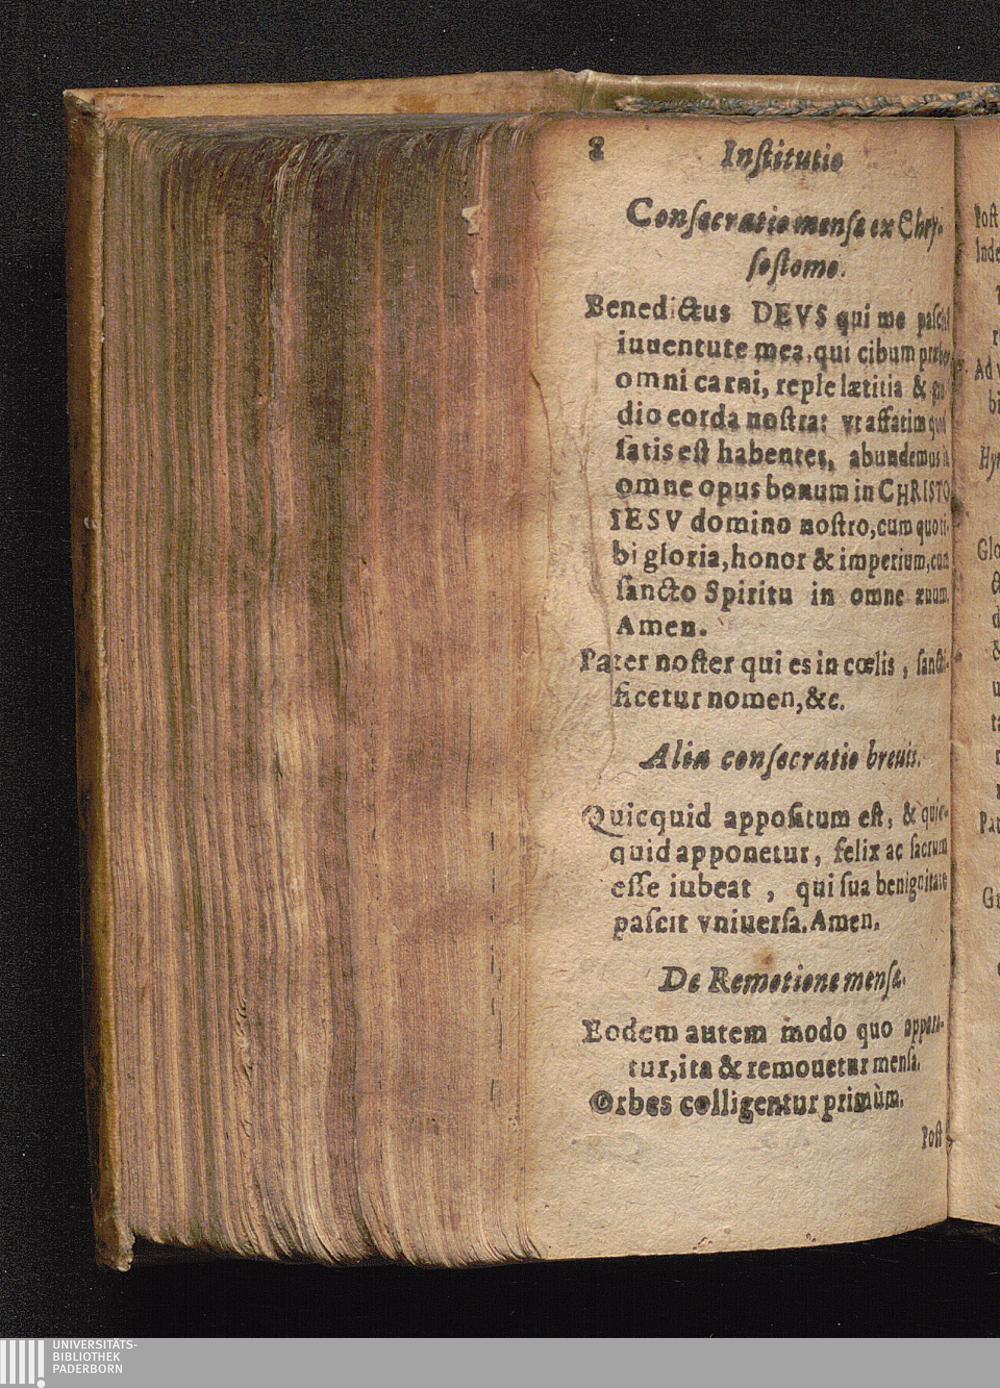 8 Inſtitutio
Conſecratio menſæ ex Chry-
ſoſtomo.
Benedictus DEVS qui me paſcis
iuuentute mea, qui cibum præbes
omni carni, reple lætitia & gau
dio corda noſtra: vt affatim quod
ſatis eſt habentes, abundemus in
omne opus bonum in CHRISTO
IESV domino noſtro, cum quo ti-
bi gloria, honor & imperium, cum
ſancto Spiritu in omne æuum.
Amen.
Pater noſter qui es in cœlis, ſancti-
ficetur nomen, &c.
Alia conſecratio breuis.
Quicquid appoſitum eſt, & quic-
quid apponetur, felix ac ſacrum
eſſe iubeat, qui ſua benignitate
paſcit vniuerſa. Amen.
De Remotione menſæ.
Eodem autem modo quo appona-
tur, ita & remouetur menſa.
Orbes colligentur primùm.
Poſt
Poſt
Inde
Ad
Hy
Glo
&
Pat
UNIVERSITÄTS-
BIBLIOTHEK
PADERBORN